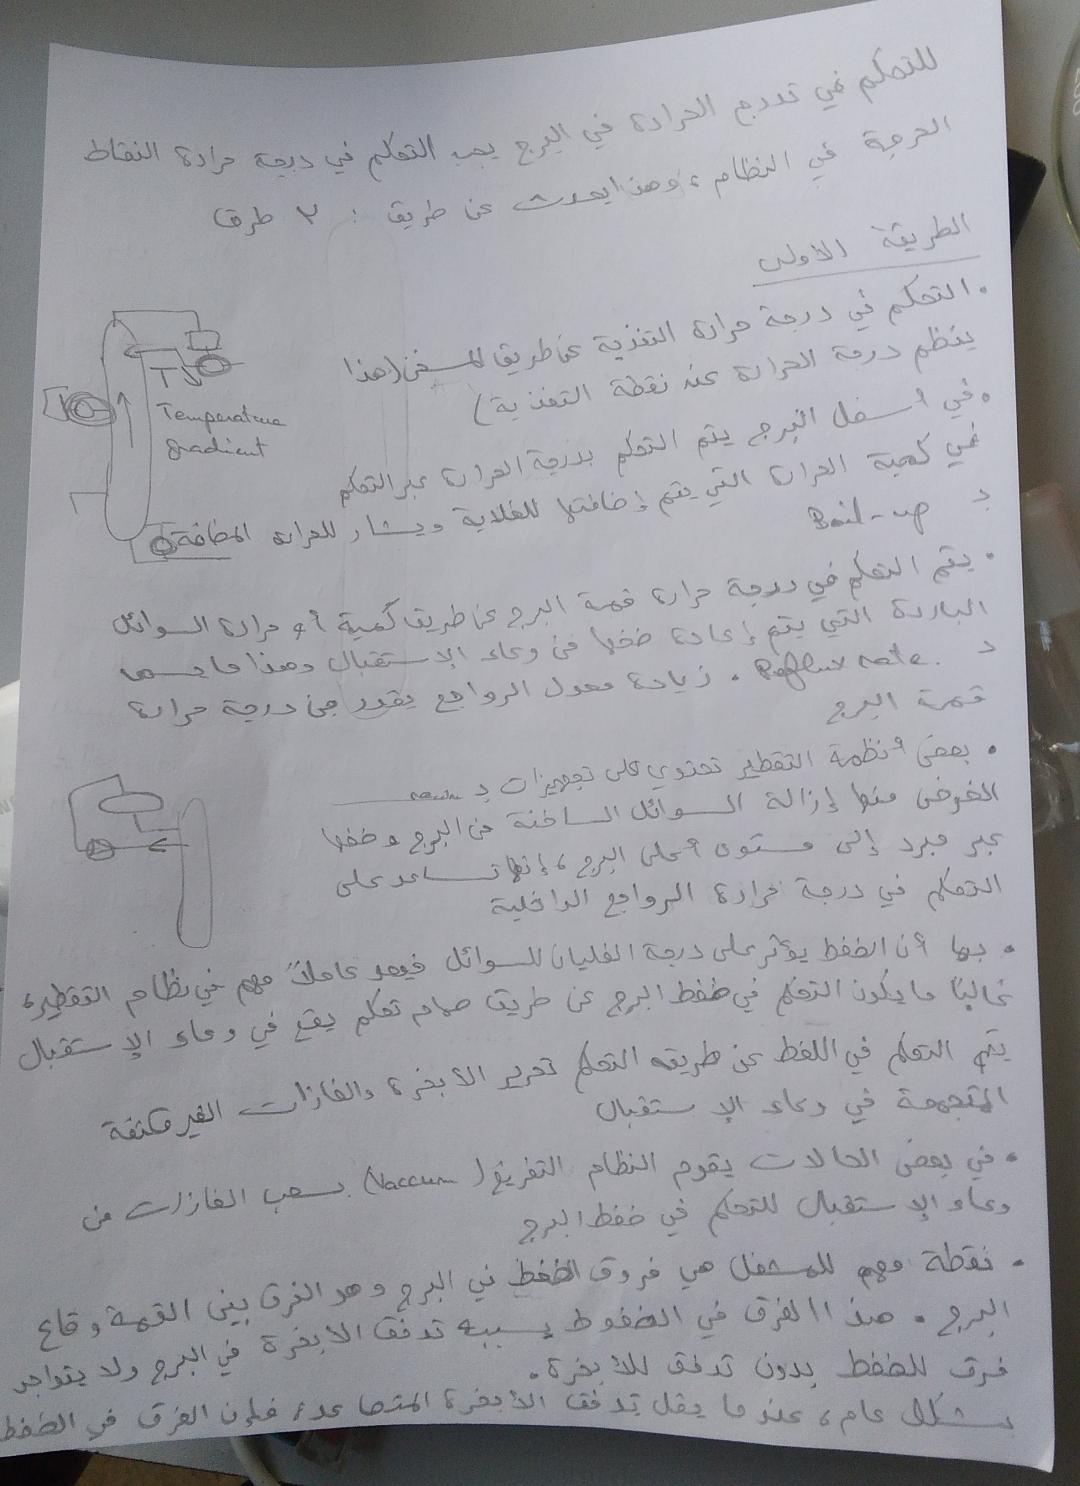 للتحكم في تدرج الحرارة في البرج يجب التحكم في درجة حرارة النقاط
الحرجة في النظام، وهذا يحدث عن طريق : ٣ طرق
الطريقة الأولى
• التحكم في درجة حرارة التغذية عن طريق المسخن (هذا
ينظم درجة الحرارة عند نقطة التغذية)
• في أسفل البرج يتم التحكم بدرجة الحرارة عبر التحكم
في كمية الحرارة التي يتم إضافتها للغلاية ويشار للحرارة المضافة
بـ Boil-up
Temperature
gradient
• يتم التحكم في درجة حرارة قمة البرج عن طريق كمية أو حرارة السوائل
الباردة التي يتم إعادة ضخها من وعاء الإستقبال وهذا ما يسمى
بـ Reflux rate. زيادة معدل الرواجع يقود من درجة حرارة
قمة البرج
• بعض أنظمة التقطير تحتوي على تجهيزات بـ
الغرض منها إزالة السوائل الساخنة من البرج وضخها
عبر مبرد إلى مستوى أعلى البرج، إنها تساعد على
التحكم في درجة حرارة الرواجع الداخلية
• بما أن الضغط يؤثر على درجة الغليان للسوائل فيعد عاملاً مهم في نظام التقطير،
غالبًا ما يكون التحكم في ضغط البرج عن طريق صمام تحكم يقع في وعاء الإستقبال
يتم التحكم في اللغط عن طريقه التحكم تحرير الأبخرة والغازات الغير مكثفة
المتجمعة في وعاء الإستقبال
• في بعض الحالات يقوم النظام التفريغ (Vaccum) بسحب الغازات من
وعاء الإستقبال للتحكم في ضغط البرج
• نقطة مهم للمشغل هي فروق الضغط في البرج وهو الفرق بين القمة وقاع
البرج. هذا الفرق في الضغوط يسببه تدفق الأبخرة في البرج ولا يتواجد
فرق للضغط بدون تدفق للأبخرة.
بشكل عام، عندما يقل تدفق الأبخرة المتصاعدة، فإن الفرق في الضغط